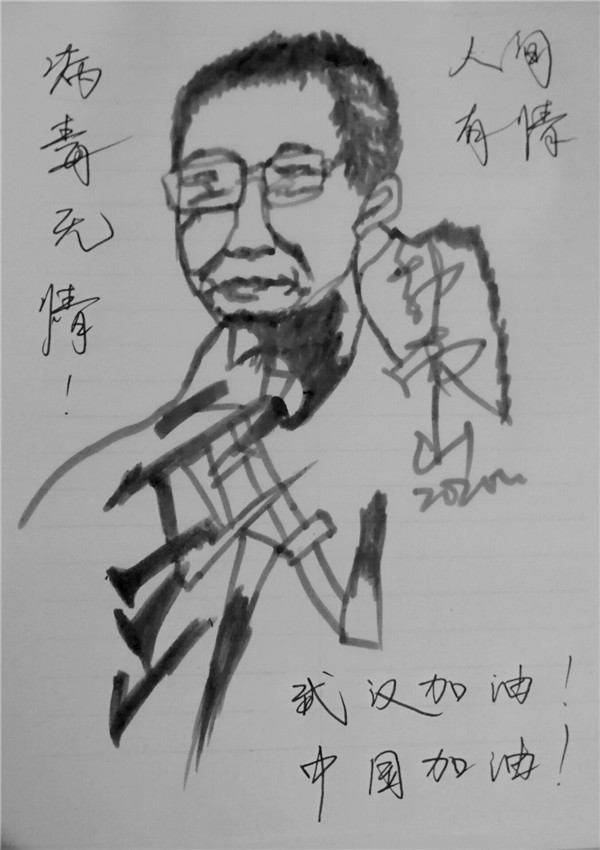 病毒无情!
人间
有情
2020
武汉加油!
中国加油!